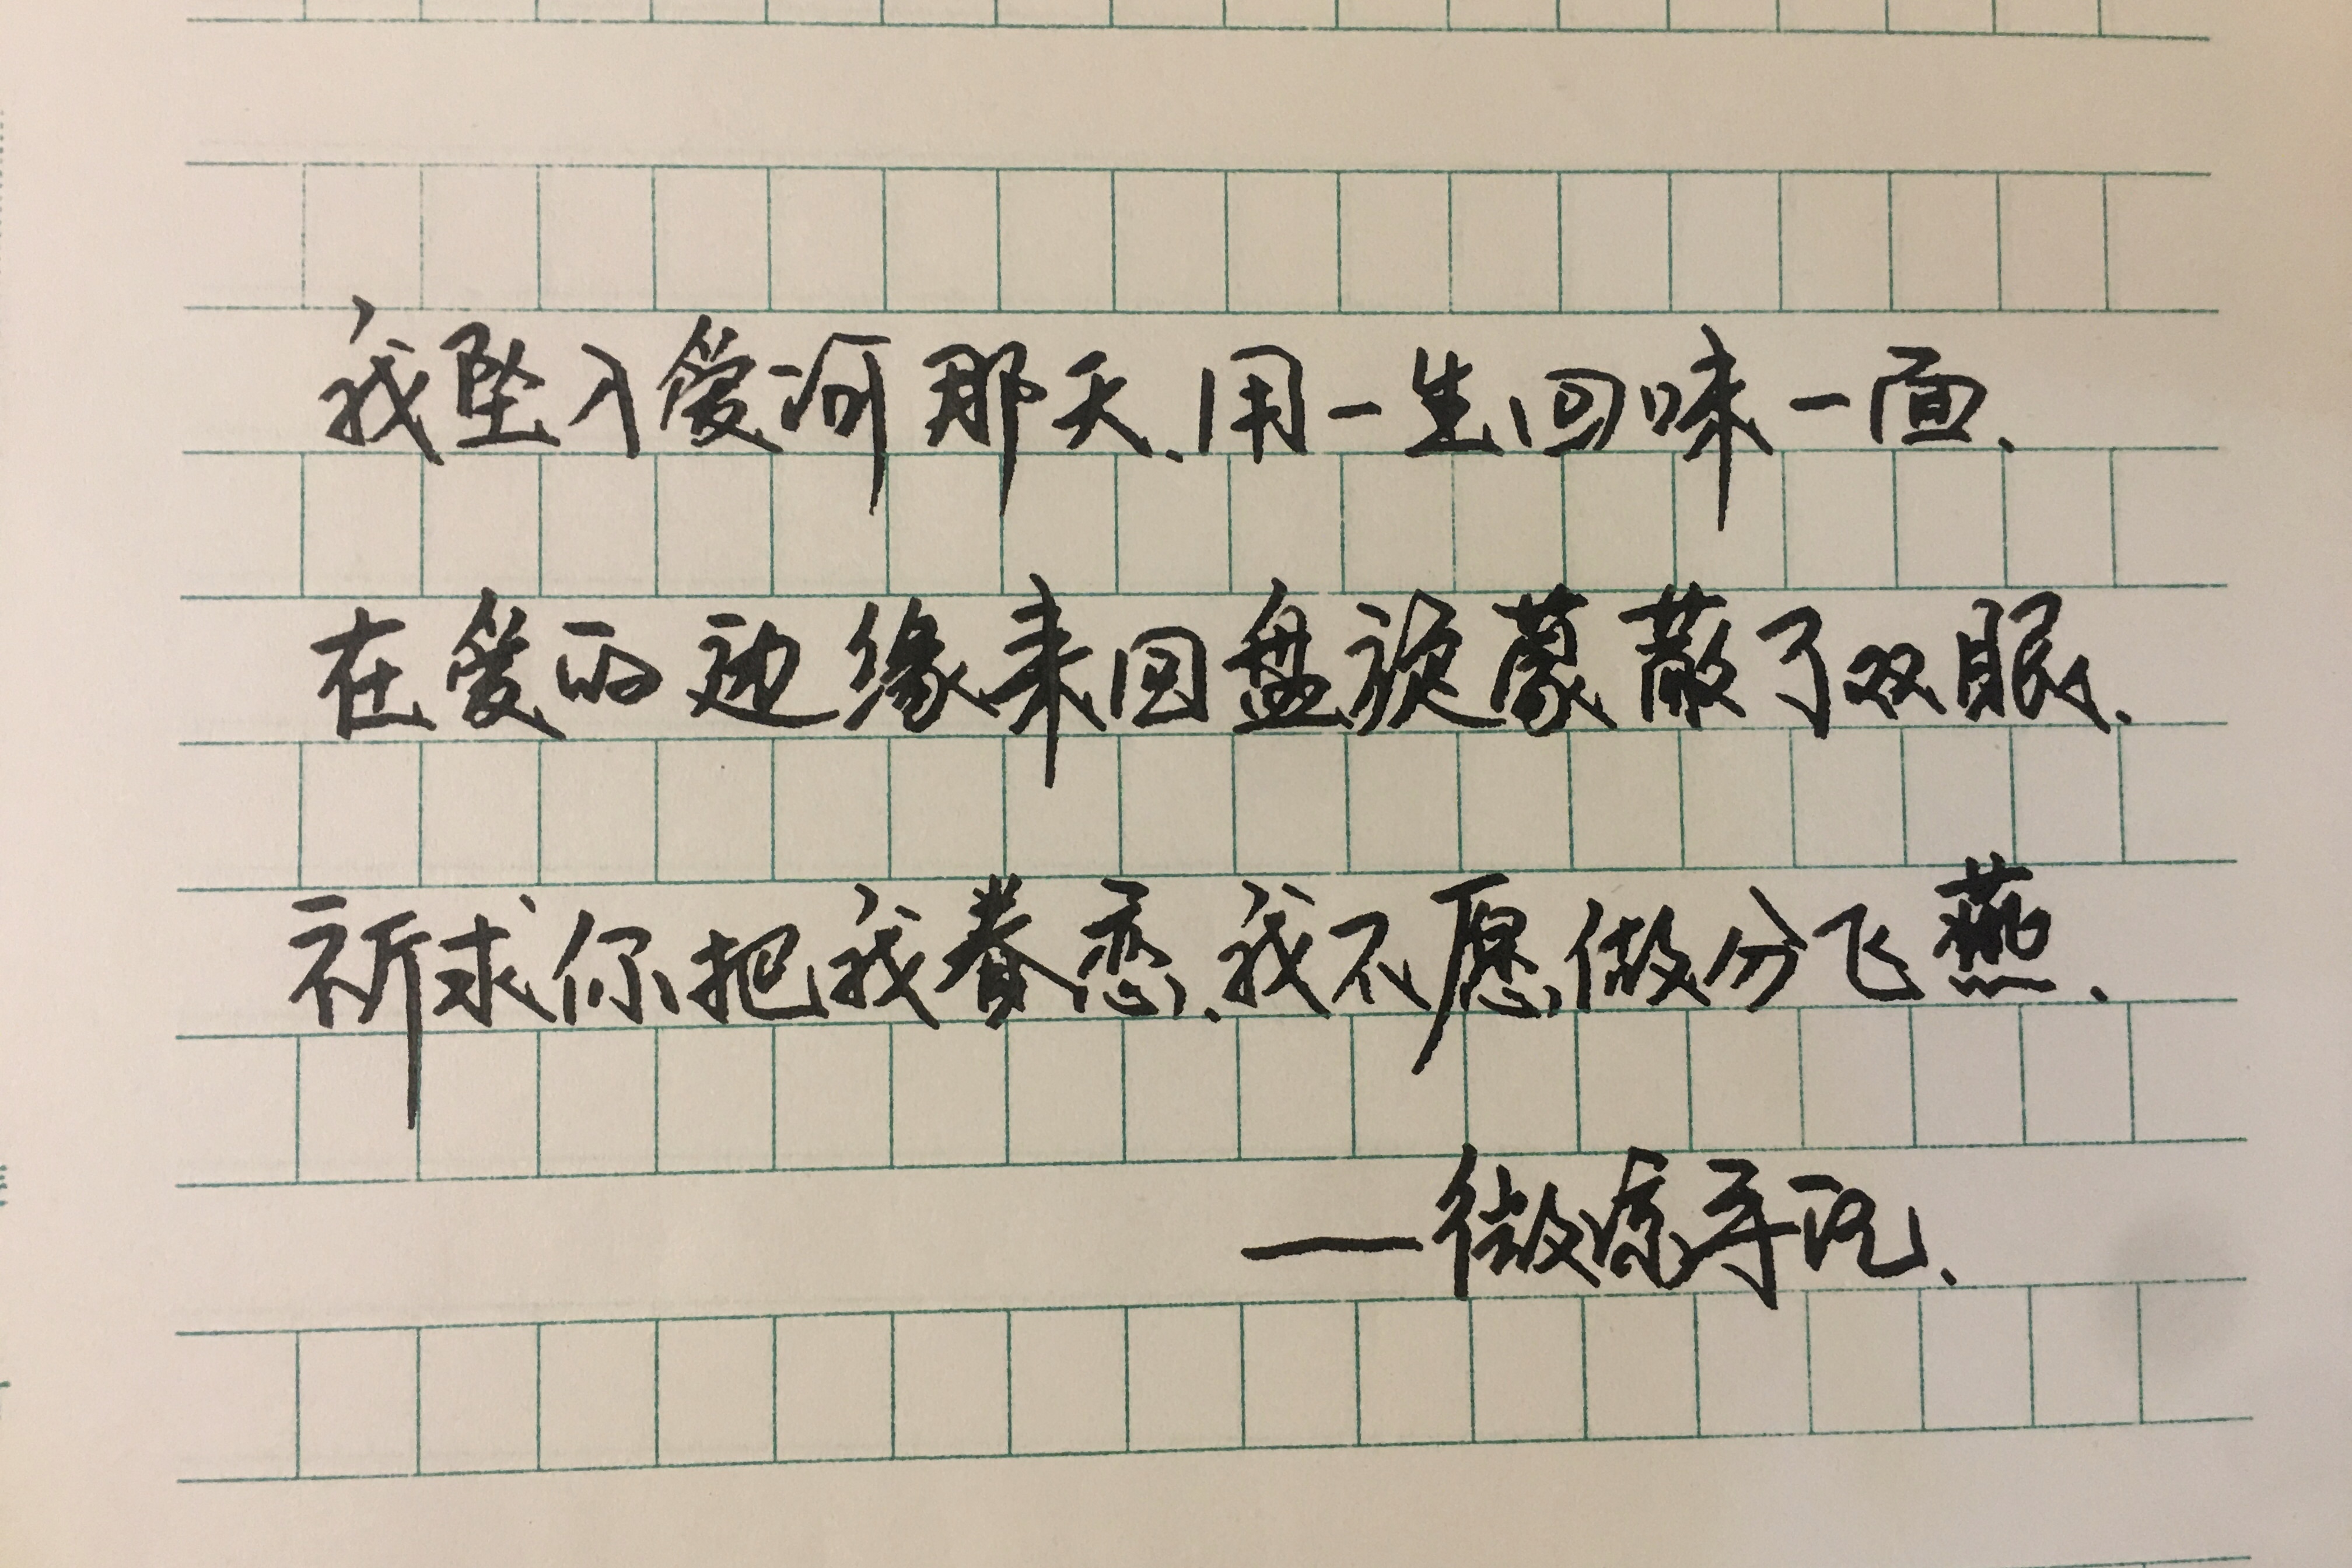 我坠入爱河那天.用一生回味一面.
在爱的边缘来回盘旋蒙蔽了双眼.
祈求你把我眷恋.我不愿做分飞燕.
—微凉手记.